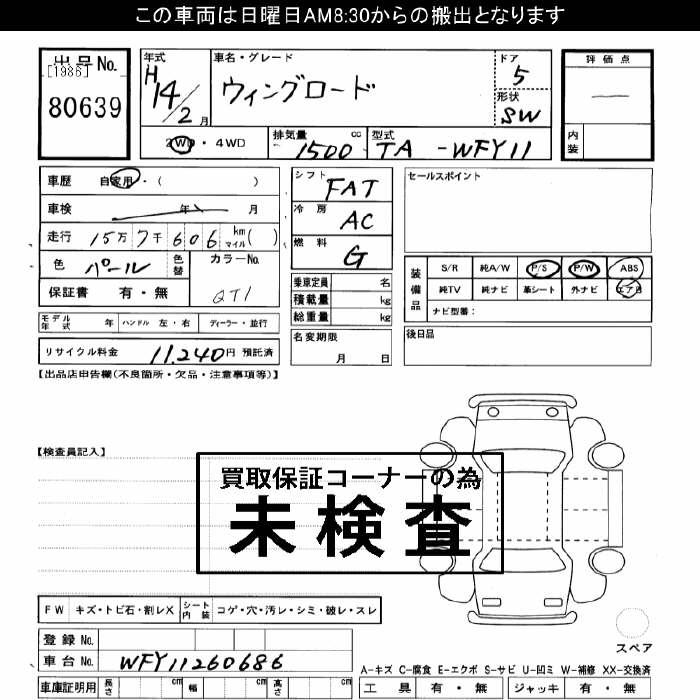 この車両は日曜日AM8:30からの搬出となります
出品No.
[1986]
80639
年式
H14/2月
車名・グレード
ウィングロード
ドア
5
形状
SW
評価点
内装
2WD・4WD
排気量 cc
1500
型式
TA-WFY11
車歴 自家用・( )
車検 年 月
走行 15万7千606 km マイル( )
色 パール 色替
カラーNo.
QT1
保証書 有・無
シフト FAT
冷房 AC
燃料 G
乗車定員 名
積載量 kg
総重量 kg
セールスポイント
装備品
S/R 純A/W P/S P/W ABS
純TV 純ナビ 革シート 外ナビ エアB
ナビ型番：
モデル年式 年 ハンドル 左・右 ディーラー・並行
名変期限
月 日
後日品
リサイクル料金 11,240円 預託済
【出品店申告欄(不良箇所・欠品・注意事項等)】
【検査員記入】
買取保証コーナーの為
未検査
FW キズ・トビ石・割レX シート内装 コゲ・穴・汚レ・シミ・破レ・スレ
登録No.
車台No. WFY11260686
車庫証明用 長さ cm 幅 cm 高さ cm
スペア
A-キズ C-腐食 E-エクボ S-サビ U-凹ミ W-補修 XX-交換済
工具 有・無 ジャッキ 有・無